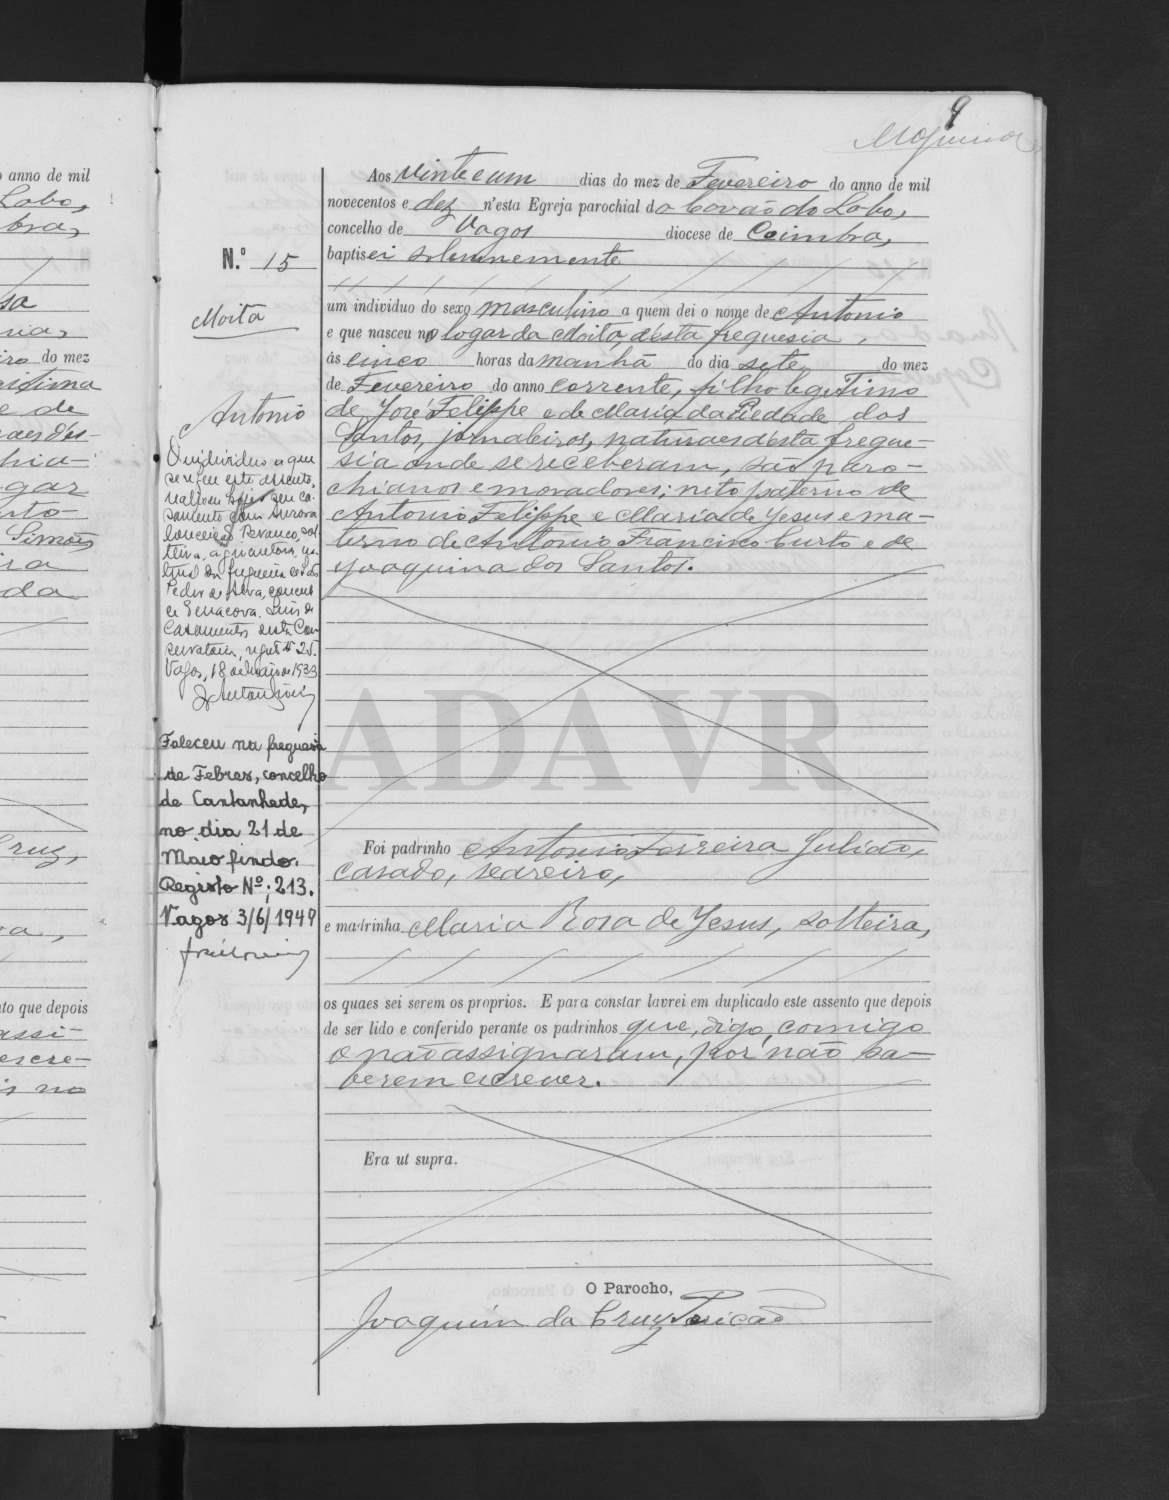 9
o anno de mil
Lobo,
bra,
sa
ria,
iro do mez
gitima
e de
aes d'es-
chia-
gar
rto-
Simões
ia
da
Cruz,
a,
nto que depois
assi-
escre-
is no
N.º 15
Moita
Antonio
O individuo a que
se refere este assento,
realisou hoje seu ca-
samento com Aurora
Conceição, sol-
teira, agricultora, na-
tural da freguesia de São
Pedro de Alva, concelho
de Penacova. Livro de
Casamentos desta Con-
servatoria, registo nº 25.
Vagos, 18 de Março de 1933
Faleceu na freguesia
de Febres, concelho
de Cantanhede,
no dia 21 de
Maio findo.
Registo Nº: 213.
Vagos 3/6/1949
Aos vinte e um dias do mez de Fevereiro do anno de mil
novecentos e dez n'esta Egreja parochial do Covão do Lobo,
concelho de Vagos diocese de Coimbra,
baptisei solemnemente
um individuo do sexo masculino a quem dei o nome de Antonio
e que nasceu no logar da Moita, d'esta freguesia,
ás cinco horas da manhã do dia sete do mez
de Fevereiro do anno corrente, filho legitimo
de José Felippe e de Maria da Piedade dos
Santos, jornaleiros, naturaes d'esta fregue-
sia onde se receberam, são paro-
chianos e moradores; neto paterno de
Antonio Felippe e Maria de Jesus e ma-
terno de Antonio Francisco Curto e de
Joaquina dos Santos.
ADAVR
Foi padrinho Antonio Ferreira Julião,
casado, seareiro,
e madrinha Maria Rosa de Jesus, solteira,
os quaes sei serem os proprios. E para constar lavrei em duplicado este assento que depois
de ser lido e conferido perante os padrinhos que, digo, comigo
o não assignaram, por não sa-
berem escrever.
Era ut supra.
O Parocho,
Joaquim da Cruz